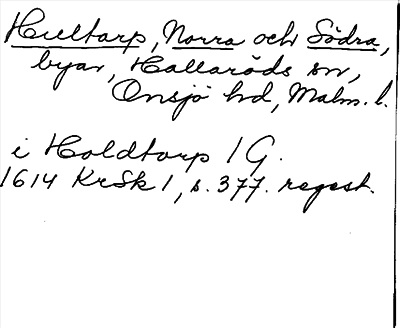 Hultarp, Norra och Södra,
byar, Hallaröds sn,
Onsjö hd, Malm. l.
i Holdtarp 1 G.
1614 KrSk 1, s. 377. regest.